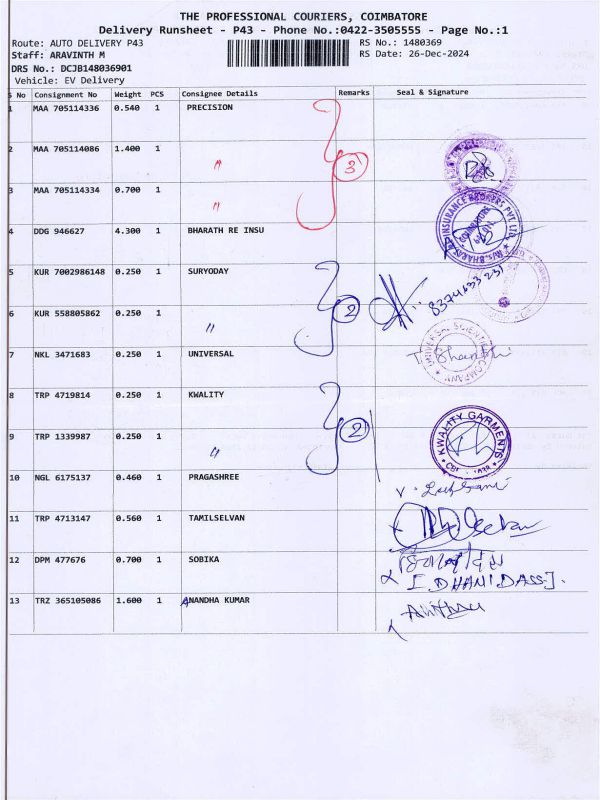 THE PROFESSIONAL COURIERS, COIMBATORE
Delivery Runsheet - P43 - Phone No.:0422-3505555 - Page No.:1
Route: AUTO DELIVERY P43 RS No.: 1480369
Staff: ARAVINTH M RS Date: 26-Dec-2024
DRS No.: DCJB148036901
Vehicle: EV Delivery
S No Consignment No Weight PCS Consignee Details Remarks Seal & Signature
1 MAA 705114336 0.540 1 PRECISION
2 MAA 705114086 1.400 1 〃 3
3 MAA 705114334 0.700 1 〃
4 DDG 946627 4.300 1 BHARATH RE INSU
INSURANCE BROKERS PVT. LTD.
5 KUR 7002986148 0.250 1 SURYODAY
2
6 KUR 558805862 0.250 1 〃
7 NKL 3471683 0.250 1 UNIVERSAL
8 TRP 4719814 0.250 1 KWALITY
2 KWALITY GARMENTS
9 TRP 1339987 0.250 1 〃
10 NGL 6175137 0.460 1 PRAGASHREE
11 TRP 4713147 0.560 1 TAMILSELVAN
12 DPM 477676 0.700 1 SOBIKA
[DHANIDASS].
13 TRZ 365105086 1.600 1 ANANDHA KUMAR